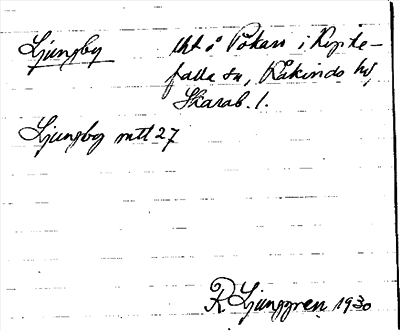 Ljungby
tht å Pökan i Rytte-
falla sn, Kåkinds hd,
Skarab. l.
Ljungby mtl 27
R Ljunggren 1930